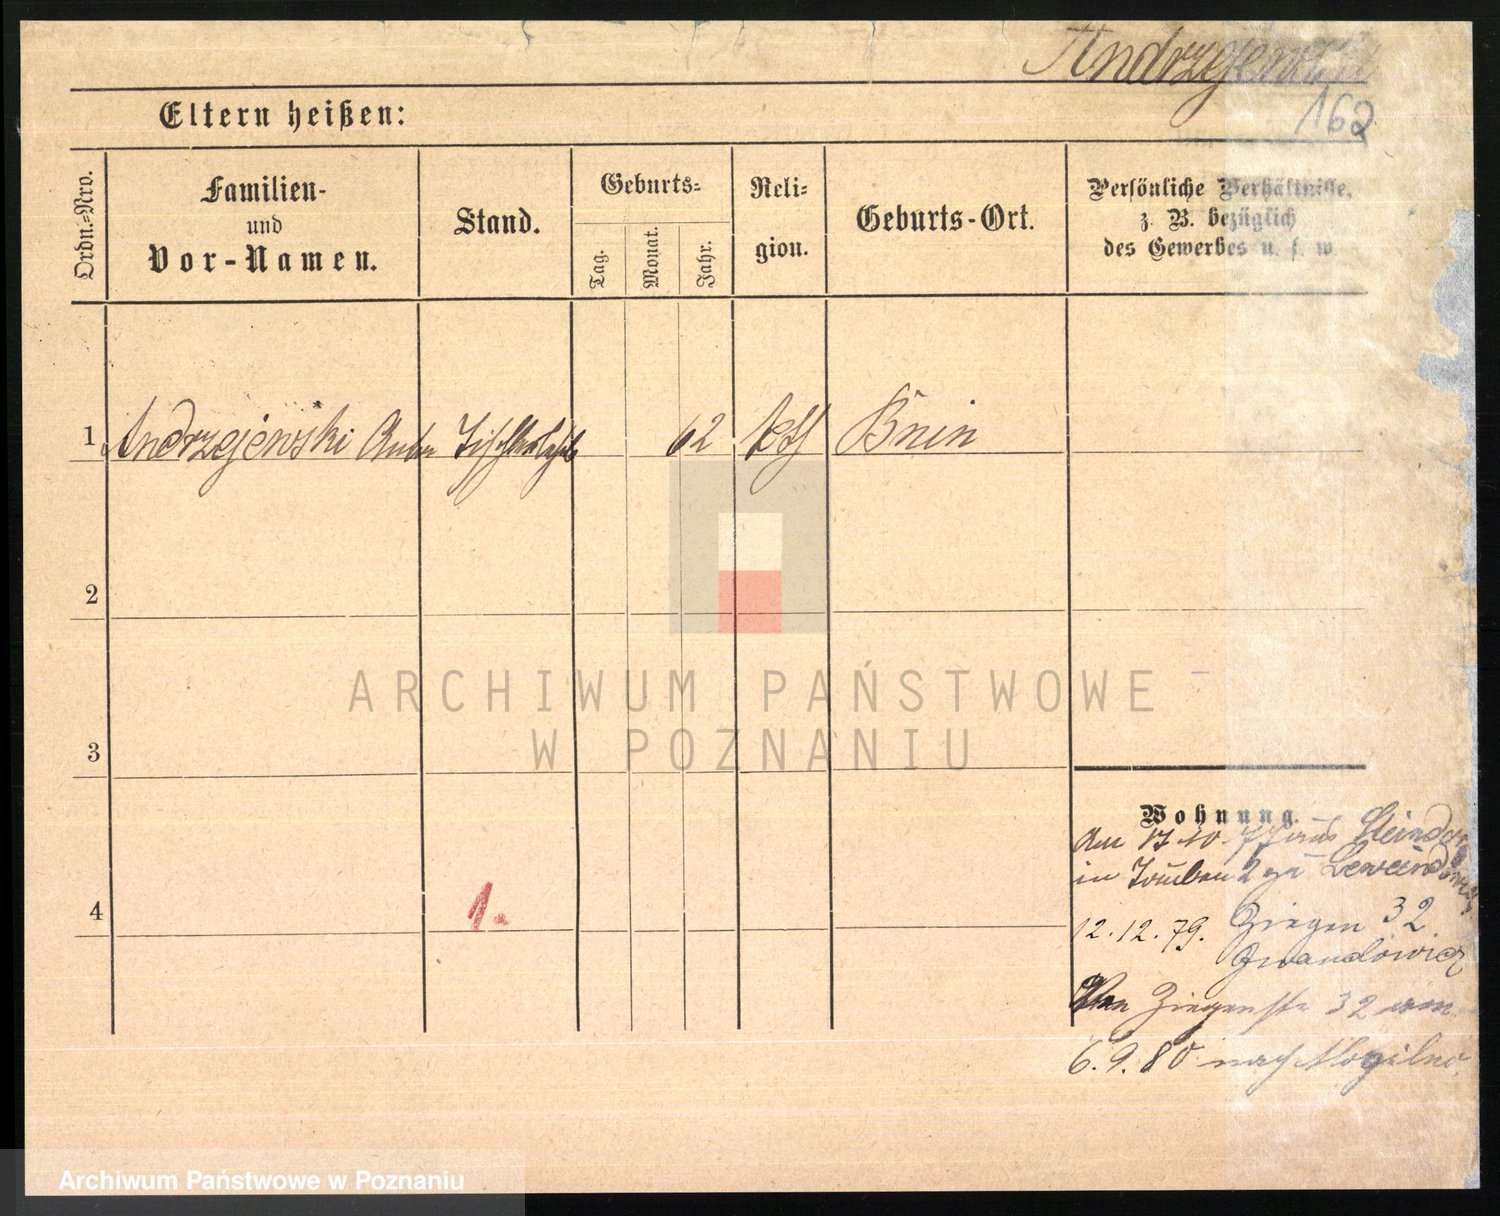 Andrzejewski
162
Eltern heißen:
Ordn.=Nro.
Familien-
und
Vor-Namen.
Stand.
Geburts=
Tag.
Monat.
Jahr.
Reli=
gion.
Geburts-Ort.
Persönliche Verhältnisse,
z. B. bezüglich
des Gewerbes u. s. w.
1
Andrzejewski Anton
62
kth
Bnin
2
3
4
1.
ARCHIWUM PAŃSTWOWE
W POZNANIU
Wohnung.
Am 17.10.77 aus
in 2 zu
12.12.79. Ziegen 32
Von Ziegenstr 32 am
6.9.80 nach Mogilno
Archiwum Państwowe w Poznaniu